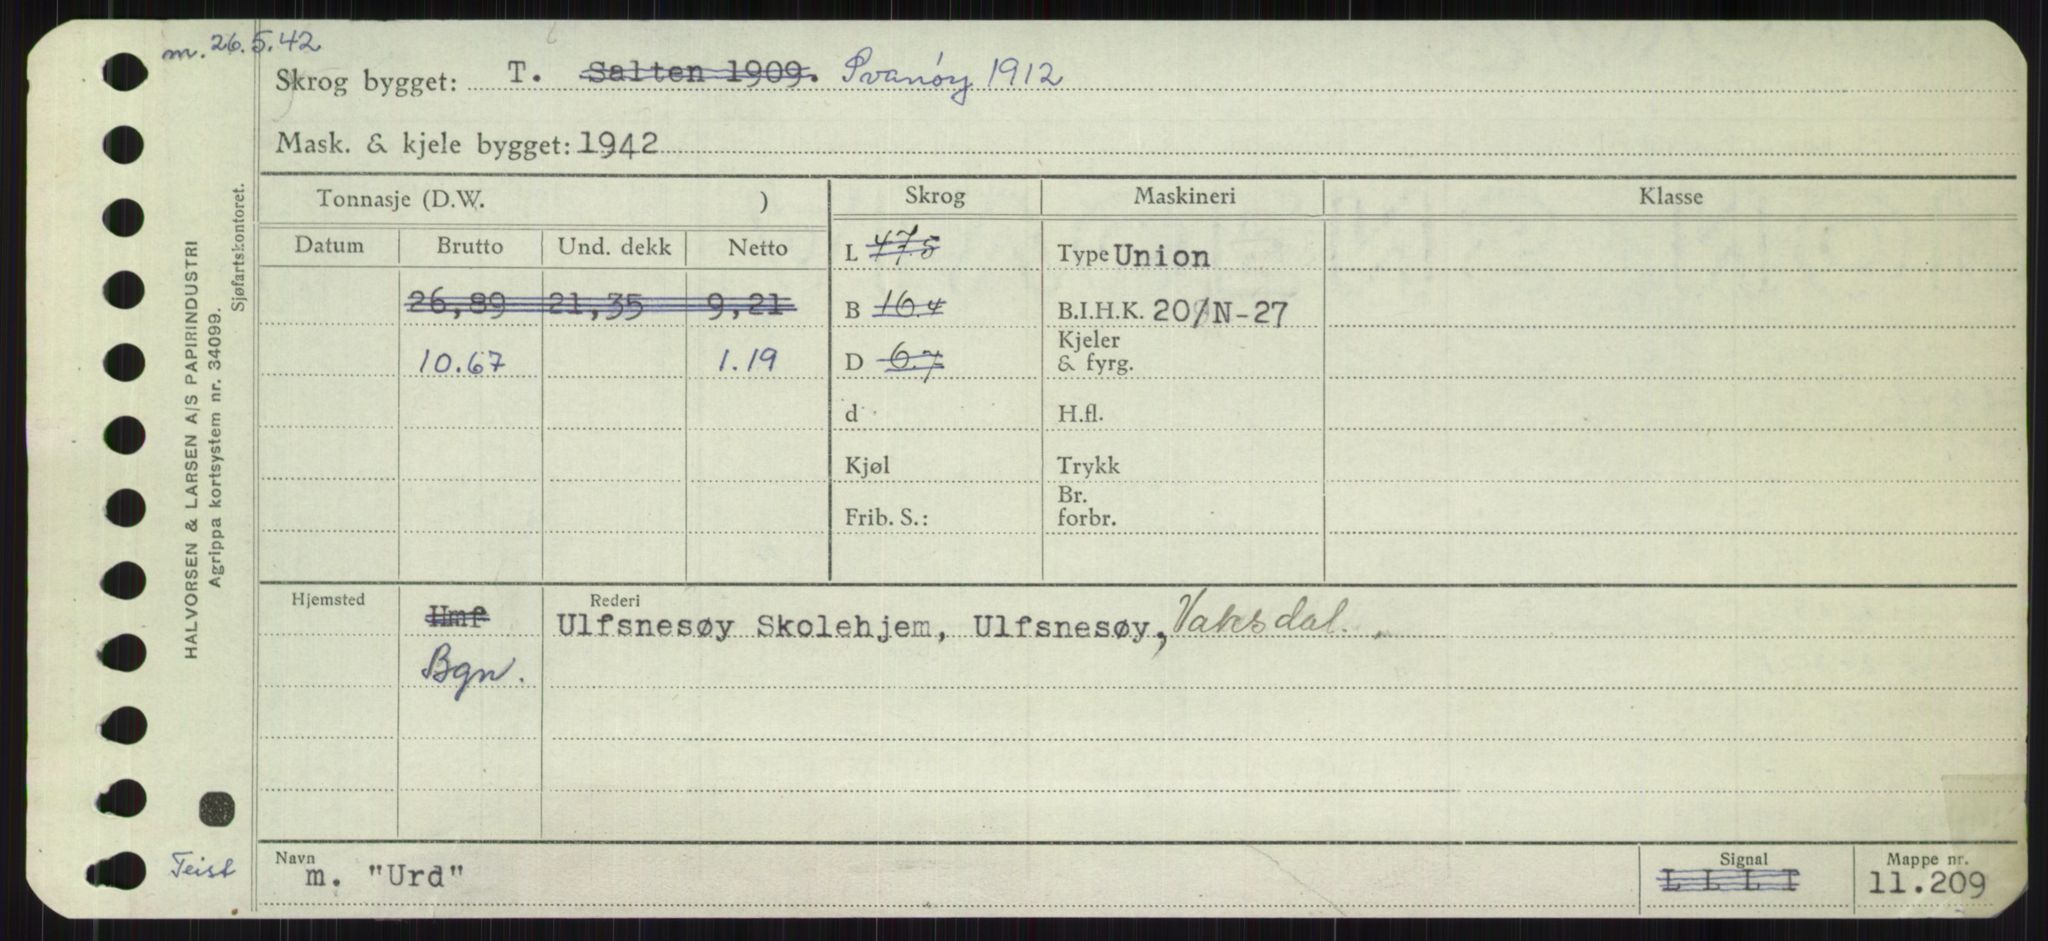 m. 26.5.42
Skrog bygget: T. Salten 1909. Svanöy 1912
Mask. & kjele bygget: 1942
Tonnasje (D.W. )
Skrog
Maskineri
Klasse
Datum Brutto Und. dekk Netto
L 47.5
Type Union
26,89 21,35 9,21
B 16.4
B.I.H.K. 20/N-27
10.67 1.19
D 6.7
Kjeler
& fyrg.
d
H.fl.
Kjøl
Trykk
Frib. S.:
Br.
forbr.
Hjemsted
Umf
Rederi
Ulfsnesøy Skolehjem, Ulfsnesøy, Vaksdal.
Bgn.
Navn
m. "Urd"
Signal
L L L I
Mappe nr.
11.209
Teist
HALVORSEN & LARSEN A/S PAPIRINDUSTRI
Agrippa kortsystem nr. 34099.
Sjøfartskontoret.